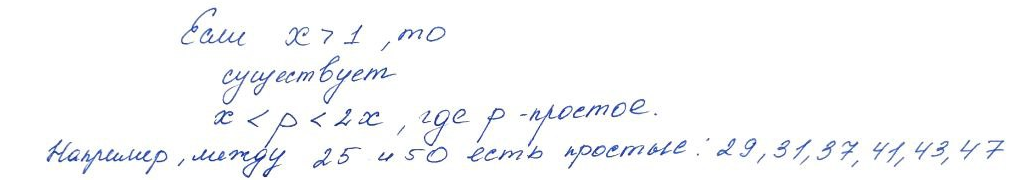 Если x > 1, то
существует
x < p < 2x, где p - простое.
Например, между 25 и 50 есть простые: 29, 31, 37, 41, 43, 47